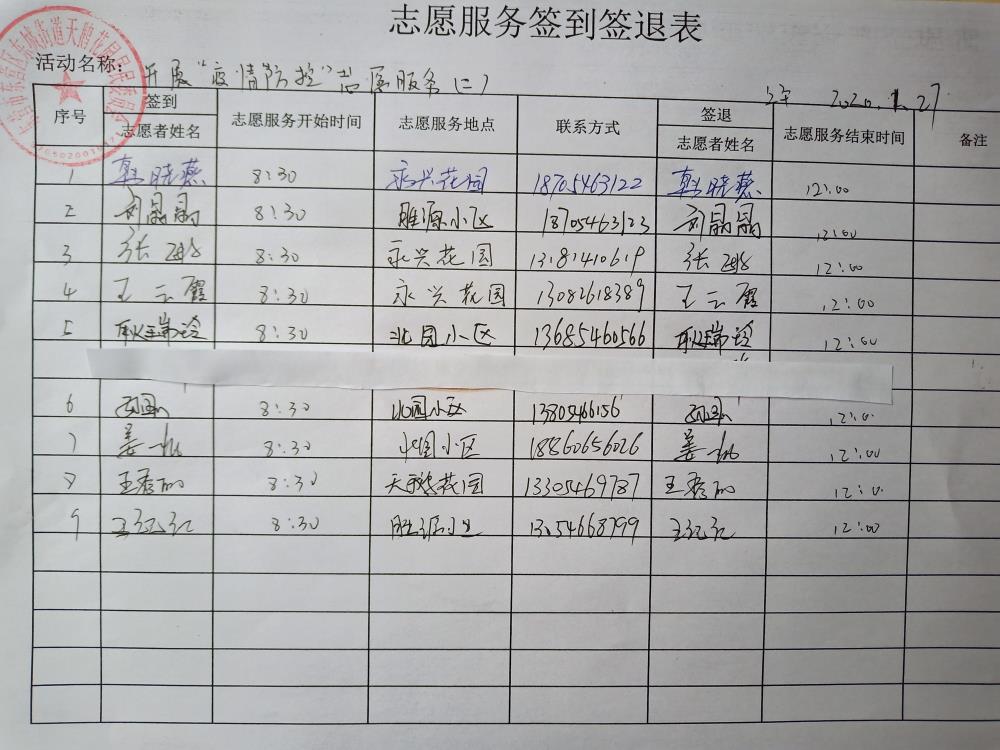 志愿服务签到签退表
活动名称: 开展"疫情防控"志愿服务(二)
2020.1.27
序号 签到 志愿者姓名 志愿服务开始时间 志愿服务地点 联系方式 签退 志愿者姓名 志愿服务结束时间 备注
1 韩晓燕 8:30 永兴花园 18705463122 韩晓燕 12:00
2 刘晶晶 8:30 胜源小区 18705463123 刘晶晶 12:00
3 张 8:30 永兴花园 13181410619 张 12:00
4 王云霞 8:30 永兴花园 13082618389 王云霞 12:00
5 耿瑞玲 8:30 北园小区 13685460566 耿瑞玲 12:00
6 8:30 北园小区 13805466156 12:0
7 姜 8:30 小区 18860656026 姜 12:00
8 王秀丽 8:30 天鹅花园 13305469787 王秀丽 12:0
9 王红 8:30 13054668799 王红 12:00